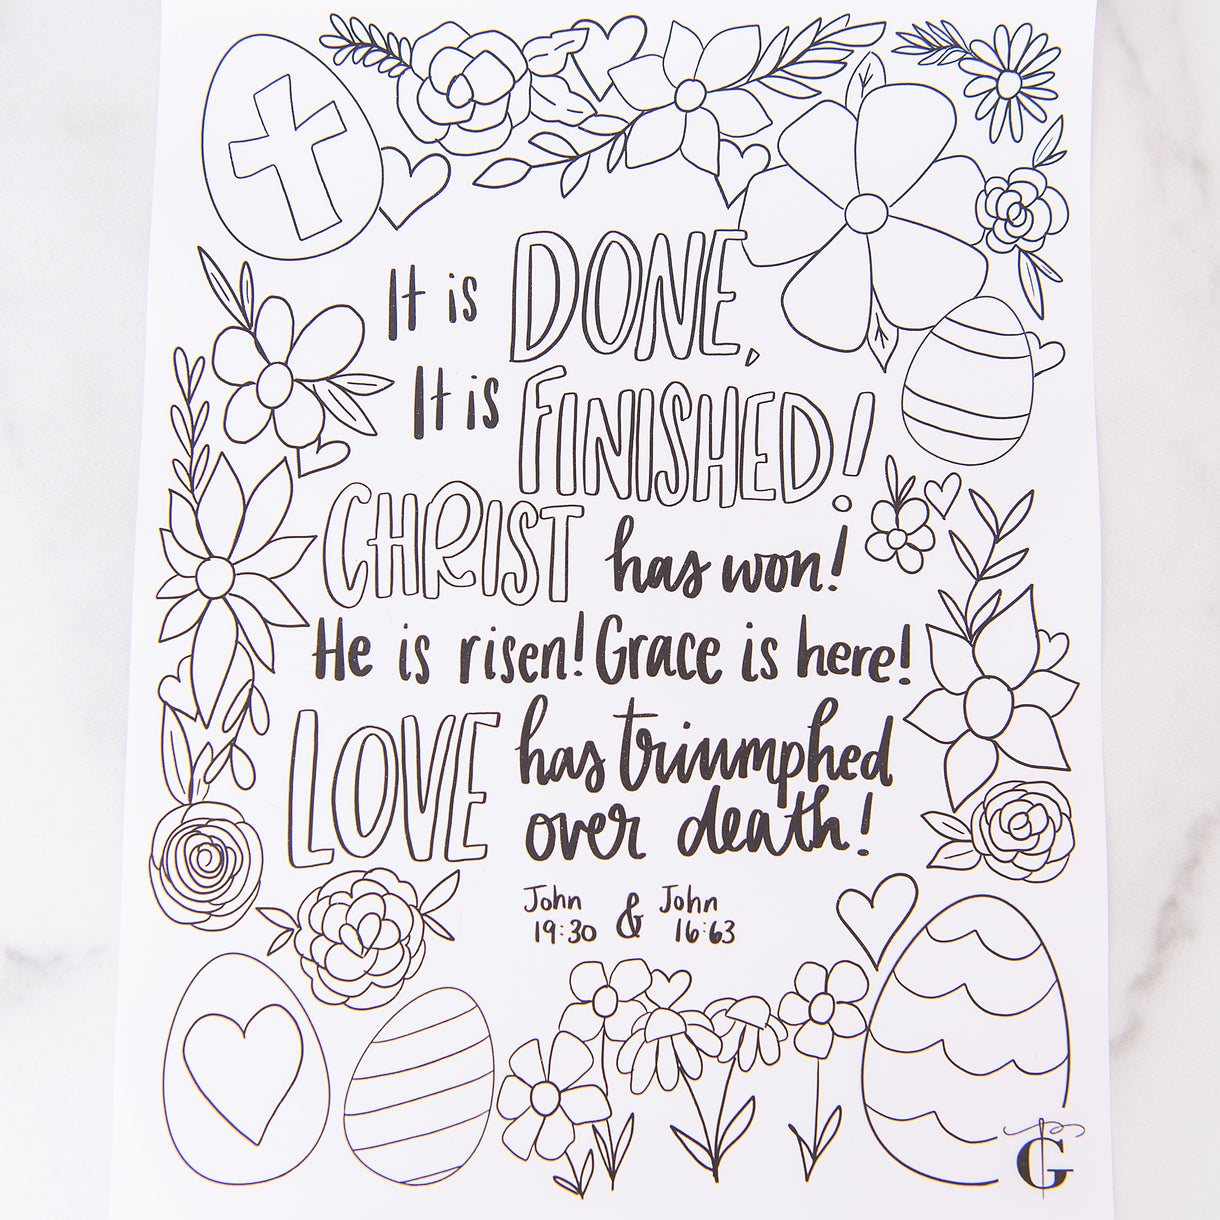 It is DONE,
It is FINISHED!
CHRIST has won!
He is risen! Grace is here!
LOVE has triumphed
over death!
John & John
19:30 16:63
G